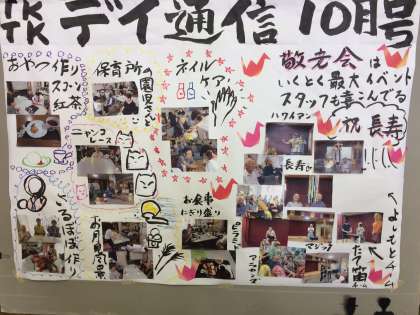 TK TK デイ通信 10月号
おやつ作り
スコーン
紅茶
保育所の
園児さんと
ニャンコ
ネイル
ケア
敬老会は
いくとく最大イベント
スタッフも喜んでる
ハワイアン
祝 長寿!!!
長寿
お食事
にぎり盛り
さるぼぼ作り
お月見
マジック